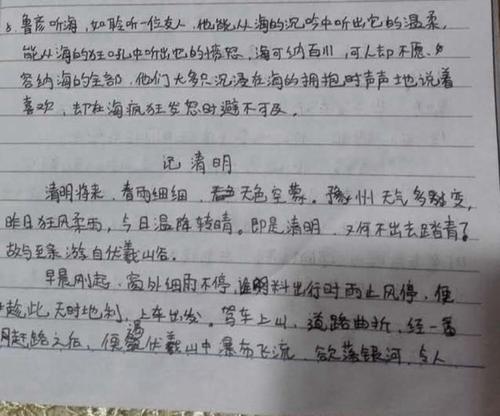 8. 鲁彦听海，如聆听一位友人，他能从海的沉吟中听出它的温柔，
能从海的狂吼中听出它的愤怒，海可纳百川，可人却不愿
容纳海的全部，他们大多只沉浸在海的拥抱时声声地说着
喜欢，却在海疯狂发怒时避不可及。
记清明
清明将来，春雨细细，天色空蒙。豫州天气多变，
昨日狂风柔雨，今日温降转晴。即是清明，又何不出去踏青？
故与至亲游自伏羲山谷。
早晨刚起，窗外细雨不停，谁料出行时雨止风停，便
趁此天时地利，上车出发。驾车上山，道路曲折，经一番
赶路之后，便 伏羲山中瀑布飞流，欲落银河，令人